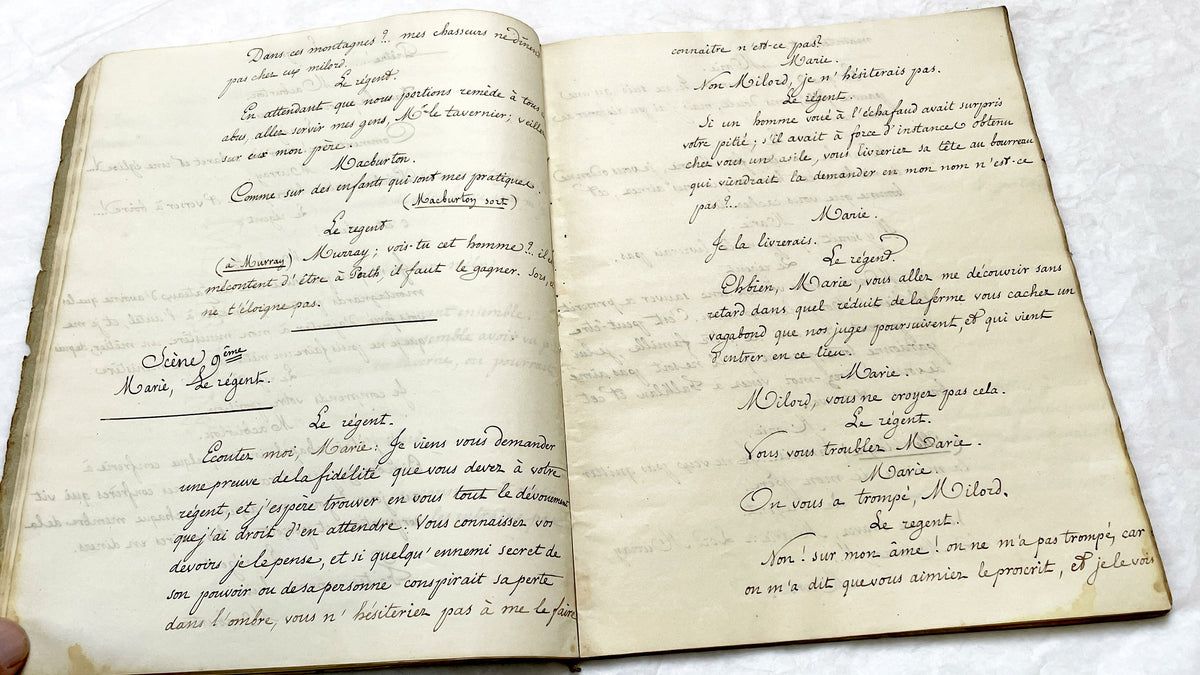 Dans ces montagnes?.. mes chasseurs ne dînent
pas chez eux milord.
Le régent.
En attendant que nous portions remède à tous
abus, allez servir mes gens, Mr le tavernier; veillez
sur eux mon père.
Macburton.
Comme sur des enfants qui sont mes pratiques.
(Macburton sort)
Le régent
(à Murray) Murray; vois-tu cet homme?.. il e
mécontent d'être à Perth, il faut le gagner. Sors,
ne t'éloigne pas.
Scène 9ème
Marie, Le régent.
Le régent.
Ecoutez moi, Marie: Je viens vous demander
une preuve de la fidélité que vous devez à votre
régent, et j'espère trouver en vous tout le dévouement
que j'ai droit d'en attendre. Vous connaissez vos
devoirs je le pense, et si quelqu'ennemi secret de
son pouvoir ou de sa personne conspirait sa perte
dans l'ombre, vous n'hésiteriez pas à me le faire
connaître n'est-ce pas?
Marie.
Non Milord, je n'hésiterais pas.
Le régent.
Si un homme voué à l'échafaud avait surpris
votre pitié; s'il avait à force d'instances obtenu
chez vous un asile, vous livreriez sa tête au bourreau
qui viendrait la demander en mon nom n'est-ce
pas?..
Marie.
Je la livrerais.
Le régent.
Eh bien, Marie, vous allez me découvrir sans
retard dans quel réduit de la ferme vous cachez un
vagabond que nos juges poursuivent, et qui vient
d'entrer en ce lieu.
Marie.
Milord, vous ne croyez pas cela.
Le régent.
Vous vous troublez Marie.
Marie
On vous a trompé, Milord.
Le régent.
Non! sur mon âme! on ne m'a pas trompé, car
on m'a dit que vous aimiez le proscrit, et je le vois